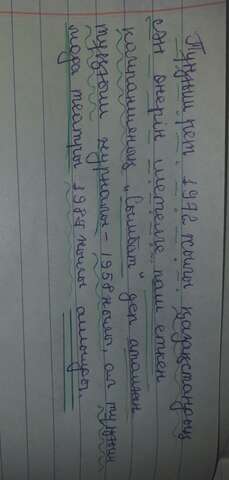 Тұңғыш рет 1972 жылы қазақстандық
сән өнерін шетелге паш еткен
компанияның „Сымбат" деп аталатын
тұңғыш журналы - 1958 жылы, ал тұңғыш
мода театры 1984 жылы ашылды.